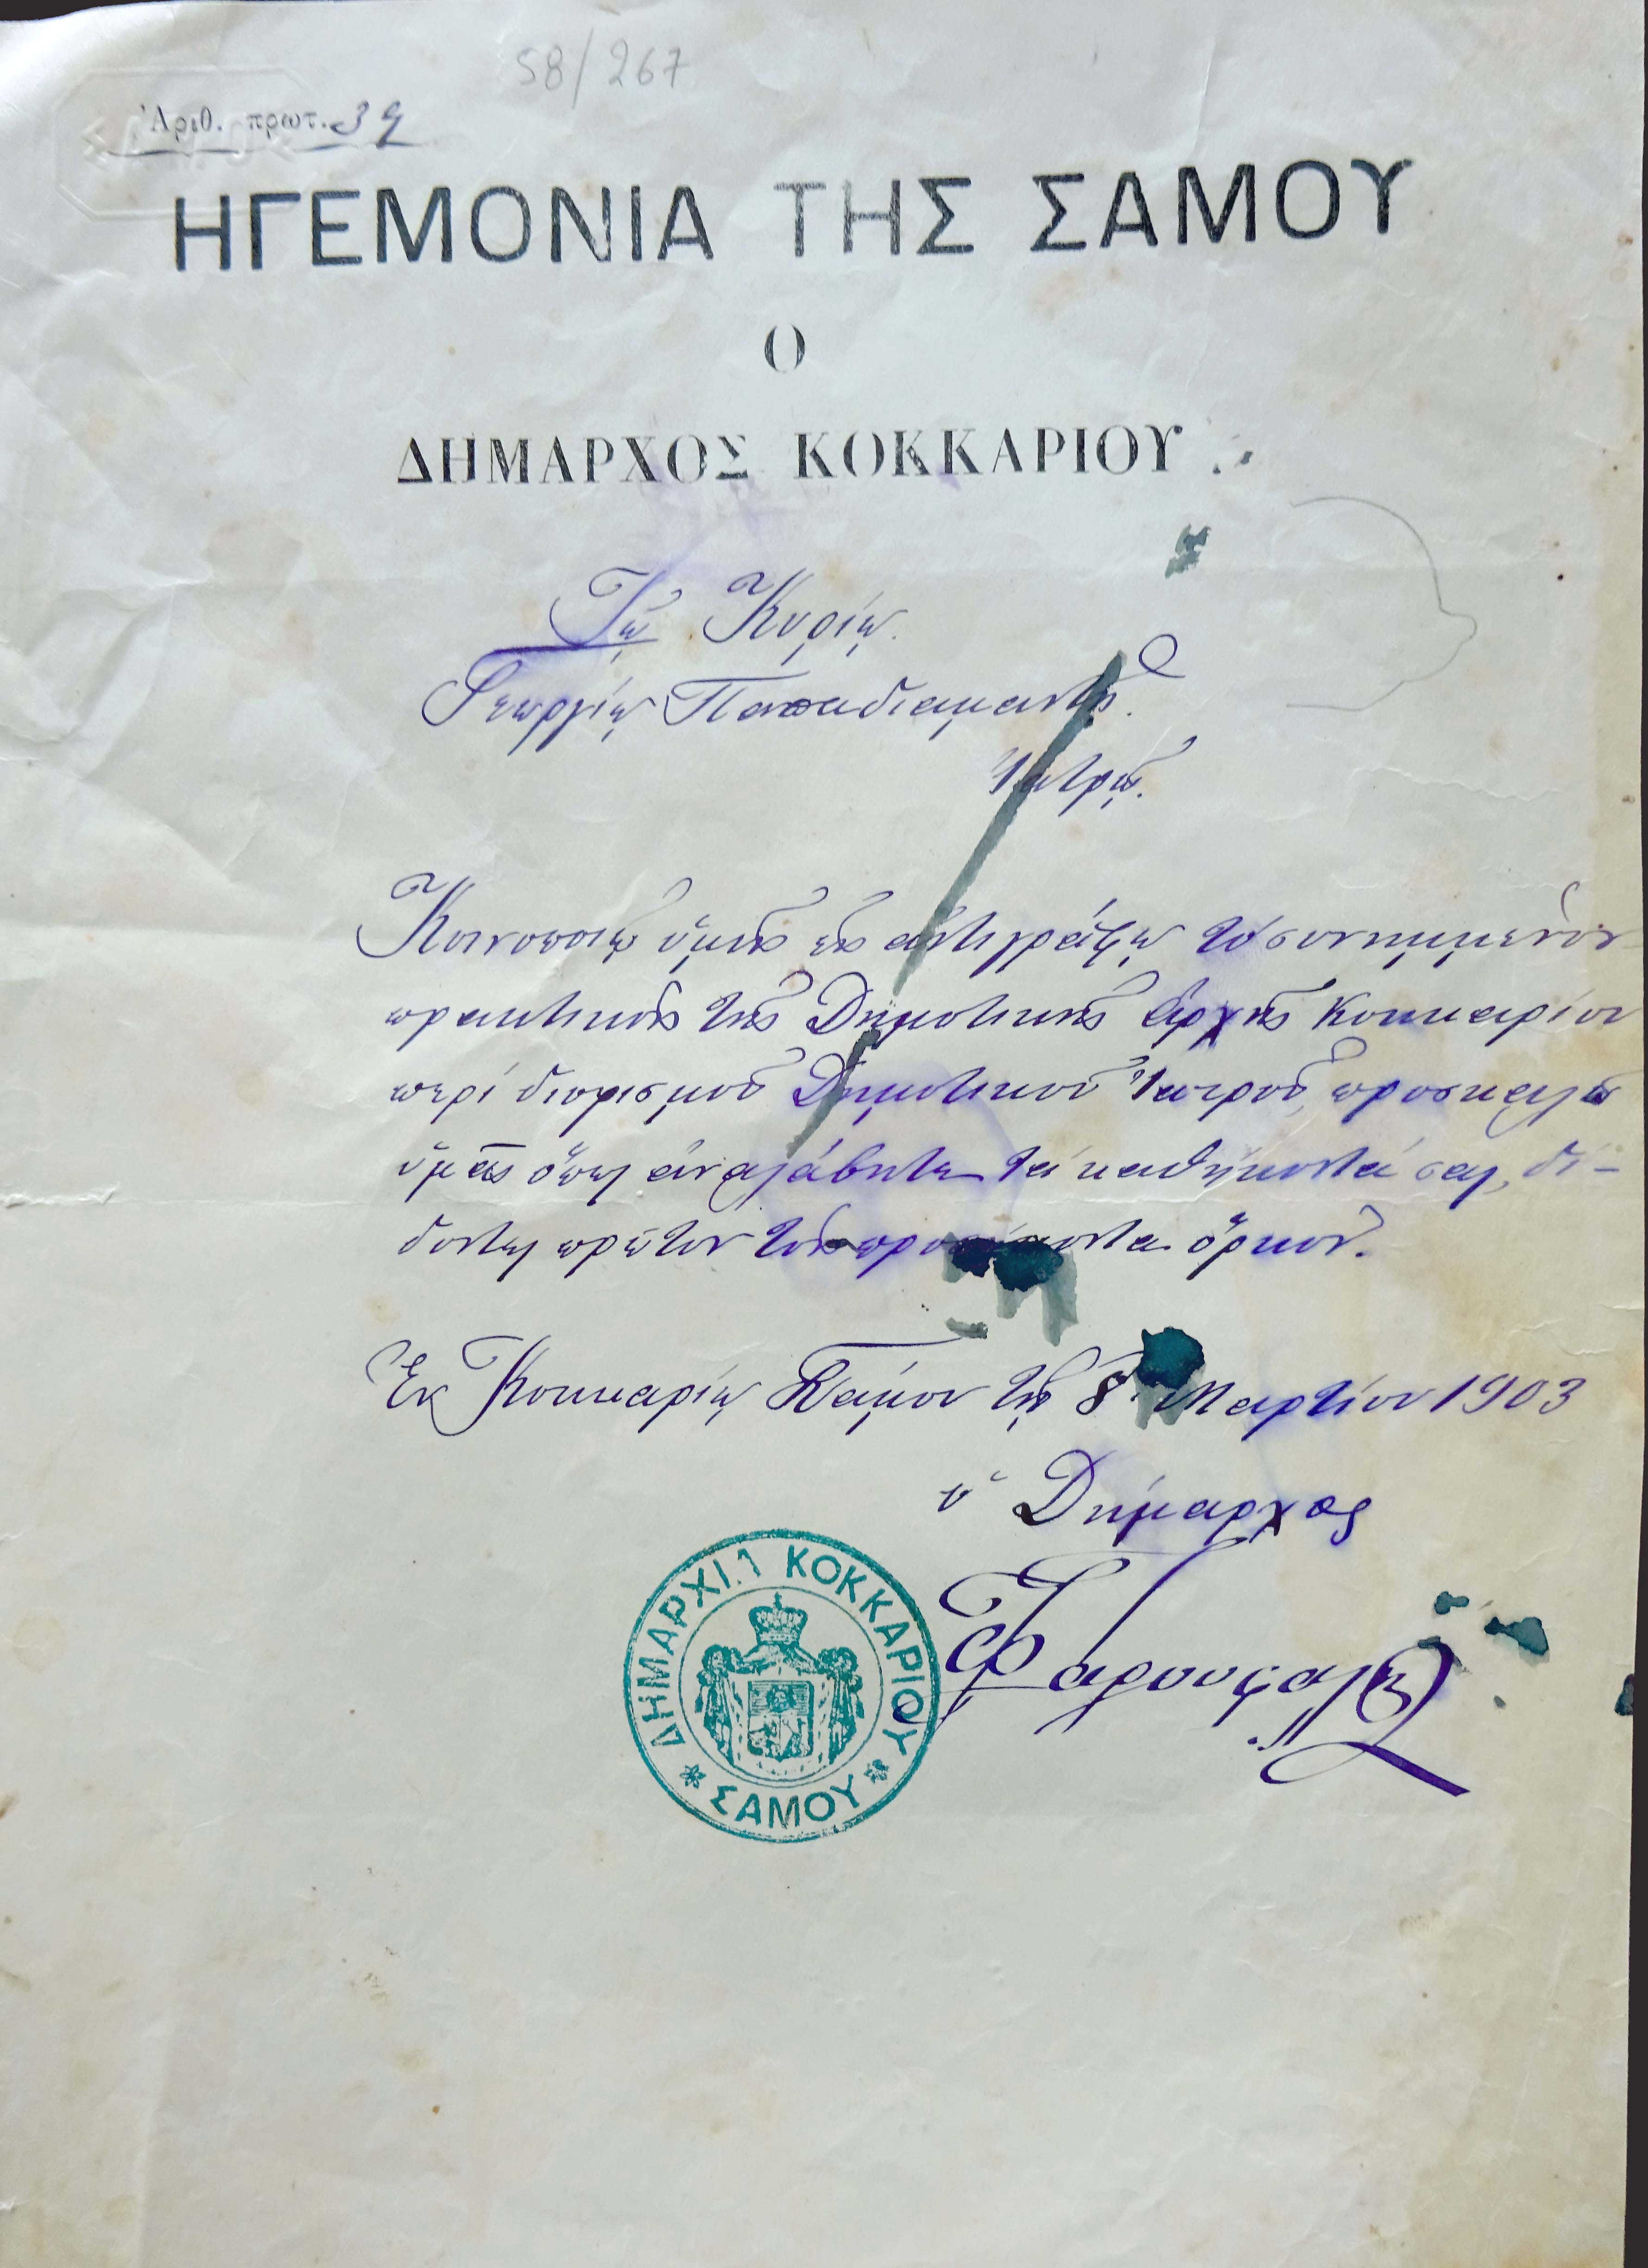 58/267
Ἀριθ. πρωτ. 39
ΗΓΕΜΟΝΙΑ ΤΗΣ ΣΑΜΟΥ
Ο
ΔΗΜΑΡΧΟΣ ΚΟΚΚΑΡΙΟΥ
Τῷ Κυρίῳ
Γεωργίῳ Παπαδιαμαντῆ
Ἰατρῷ.
Κοινοποιῶ ὑμῖν ἐν ἀντιγράφῳ τὸ συνημμένον
πρακτικὸν τῆς Δημοτικῆς Ἀρχῆς Κοκκαρίου
περὶ διορισμοῦ Δημοτικοῦ Ἰατροῦ, προσκαλῶ
ὑμᾶς ὅπως ἀναλάβητε τὰ καθήκοντά σας, δί-
δοντες πρῶτον τὸν προσήκοντα ὅρκον.
Ἐν Κοκκαρίῳ Σάμου τῇ 8 Μαρτίου 1903
ὁ Δήμαρχος
ΔΗΜΑΡΧΙΑ ΚΟΚΚΑΡΙΟΥ
ΣΑΜΟΥ